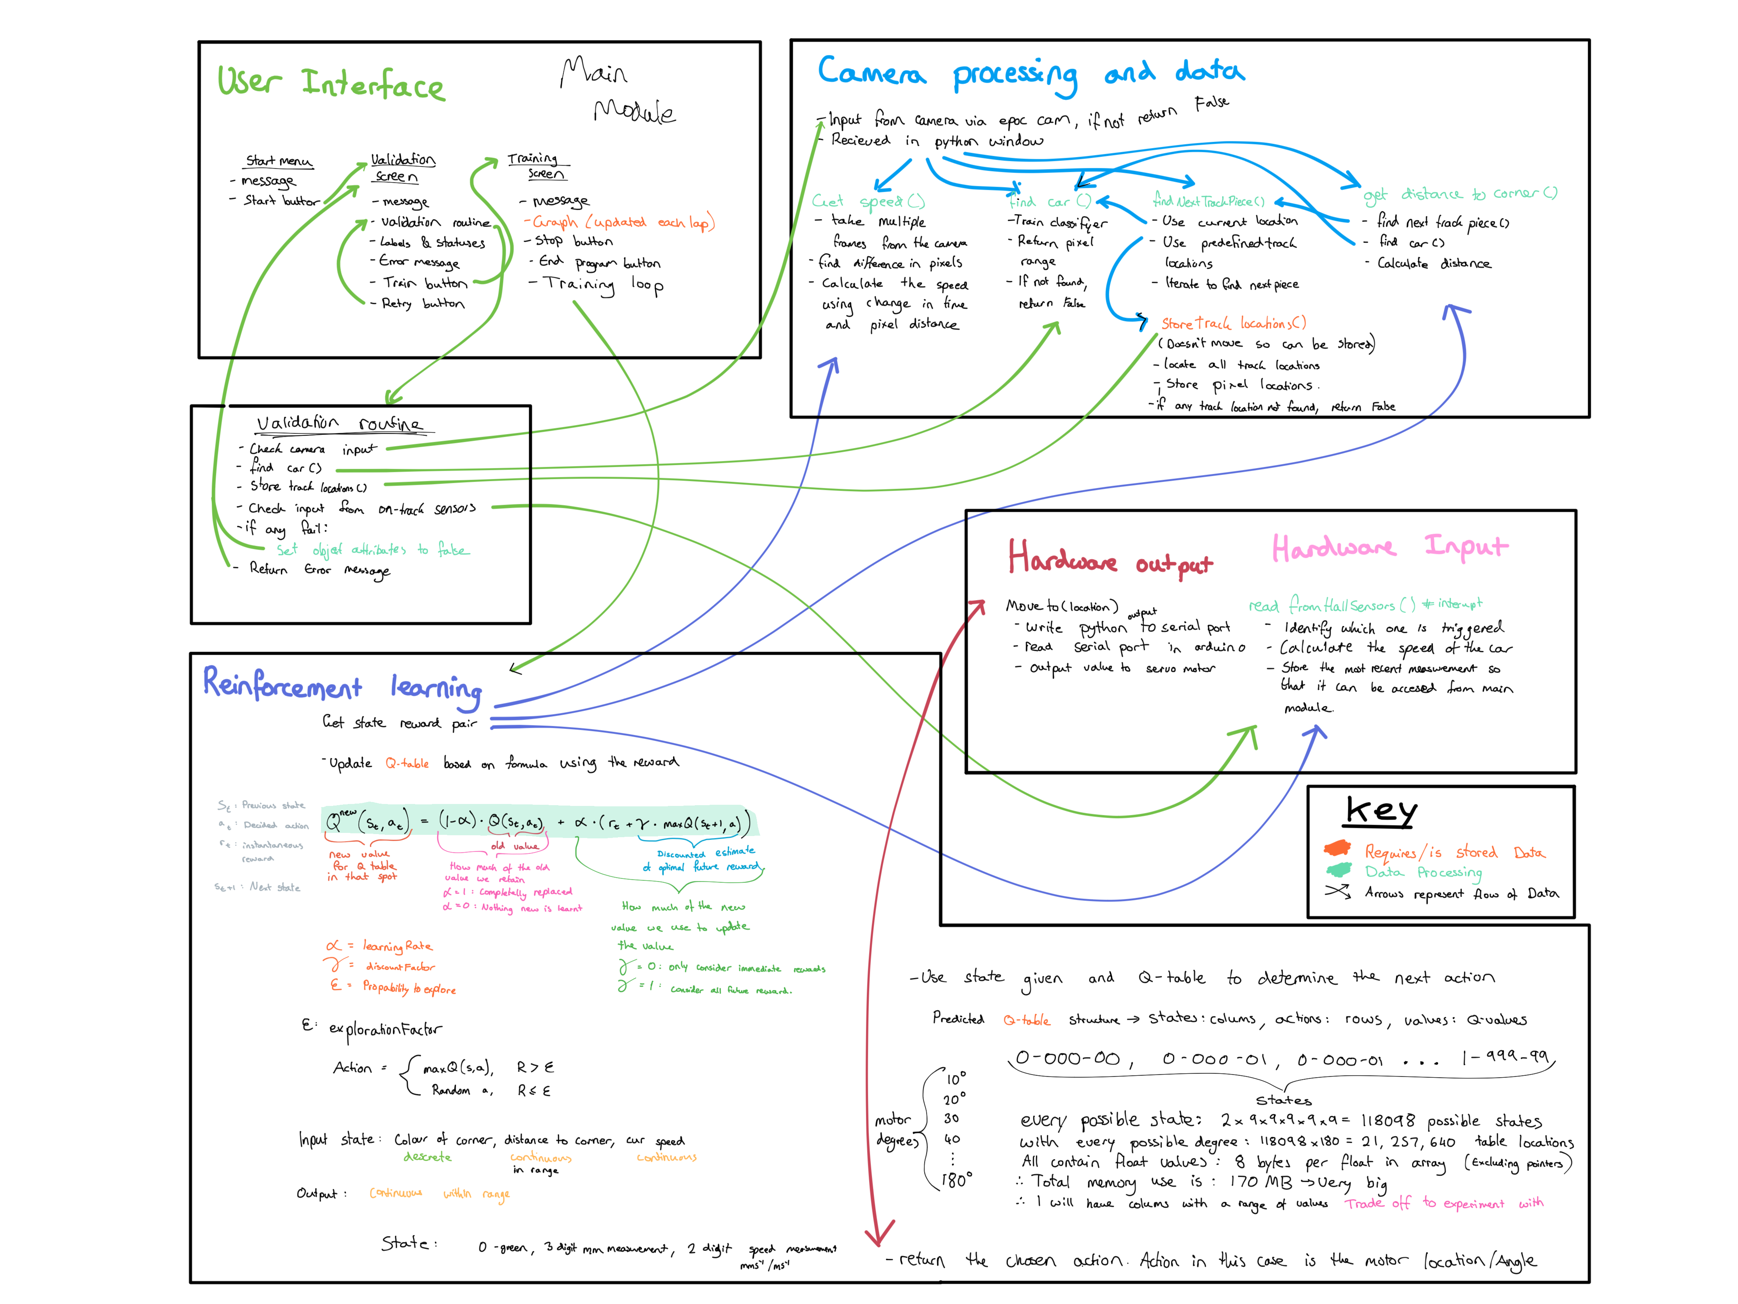 User Interface
Main
Module
Start menu
- message
- Start button
Validation
Screen
- message
- validation routine
- Labels & statuses
- Error message
- Train button
- Retry button
Training
Screen
- message
- Graph (updated each lap)
- Stop button
- End program button
- Training loop
Camera processing and data
- Input from camera via epoc cam, if not return False
- Recieved in python window
Get speed()
- take multiple
frames from the camera
- find difference in pixels
- Calculate the speed
using change in time
and pixel distance
find car()
- Train classifyer
- Return pixel
range
- If not found,
return False
findNextTrackPiece()
- Use current location
- Use predefined track
locations
- Iterate to find next piece
Store track locations()
(Doesn't move so can be stored)
- locate all track locations
- Store pixel locations.
- if any track location not found, return False
get distance to corner()
- find next track piece()
- find car()
- Calculate distance
Validation routine
- Check camera input
- find car()
- Store track locations()
- Check input from on-track sensors
- if any fail:
Set object attributes to false
- Return Error message
Hardware output
Move to (location)
output
- write python to serial port
- read serial port in arduino
- output value to servo motor
Hardware Input
read fromHallSensors() # interupt
- Identify which one is triggered
- Calculate the speed of the car
- Store the most recent measurement so
that it can be accesed from main
module.
key
Requires/is stored Data
Data Processing
Arrows represent flow of Data
Reinforcement learning
Get state reward pair
- Update Q-table based on formula using the reward
St : Previous state
at : Decided action
rt : instantaneous
reward
St+1 : Next state
Q^new (St, at) = (1-α) · Q(St, at) + α · (rt + γ · maxQ(St+1, a))
new value
for Q table
in that spot
old value
How much of the old
value we retain
α = 1 : Completely replaced
α = 0 : Nothing new is learnt
Discounted estimate
of optimal future reward
How much of the new
value we use to update
the value
γ = 0 : only consider immediate rewards
γ = 1 : Consider all future reward.
α = learningRate
γ = discountFactor
ε = Propability to explore
ε: explorationFactor
Action = { maxQ(s,a), R > ε
Random a, R ≤ ε
Input state: Colour of corner, distance to corner, cur speed
descrete continuous continuous
in range
Output : Continuous within range
State: 0-green, 3 digit mm measurement, 2 digit speed measurement
mms⁻¹/ms⁻¹
- Use state given and Q-table to determine the next action
Predicted Q-table structure → States: colums, actions: rows, values: Q-values
0-000-00, 0-000-01, 0-000-01 ... 1-999-99
States
motor
degrees
10°
20°
30
40
⋮
180°
every possible state: 2×9×9×9×9×9 = 118098 possible states
with every possible degree : 118098×180 = 21,257,640 table locations
All contain float values : 8 bytes per float in array (Excluding pointers)
∴ Total memory use is : 170 MB → Very big
∴ I will have colums with a range of values Trade off to experiment with
- return the chosen action. Action in this case is the motor location/Angle